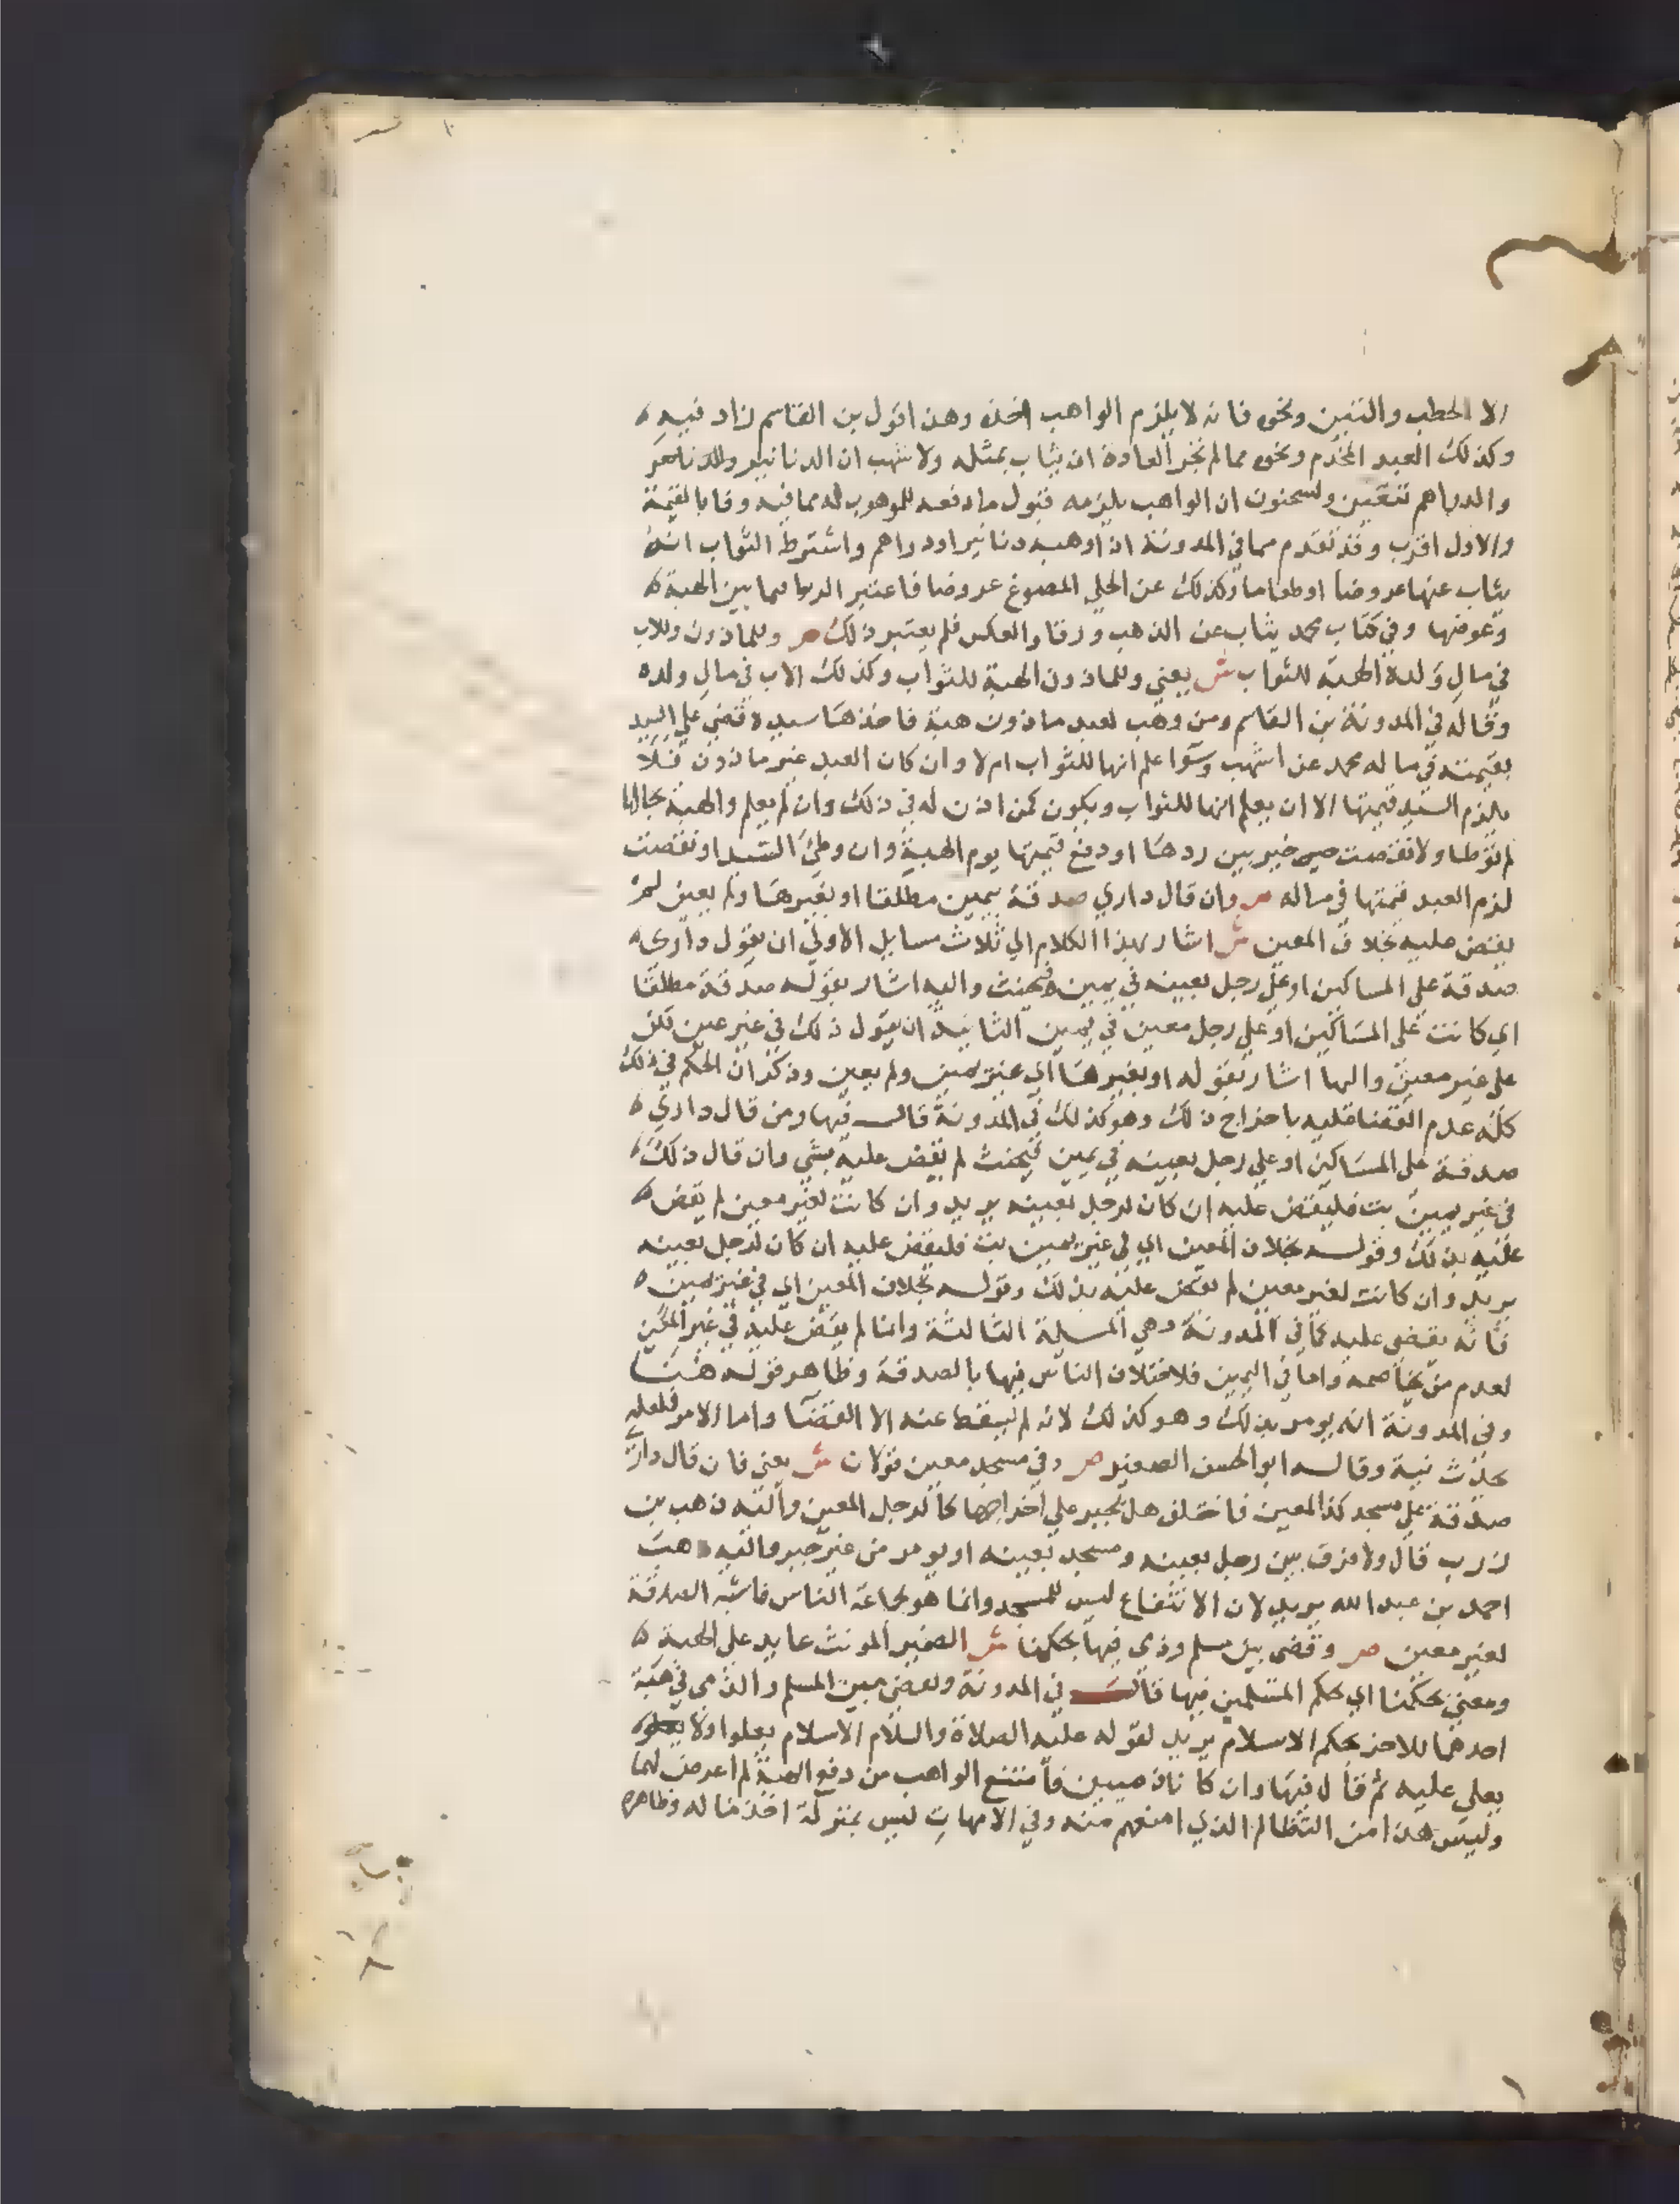 الا الحطب والتبن ونحوه فانه لا يلزم الواهب اخذه وهذا قول بن القاسم زاد فيه
وكذلك العبد المخدم ونحوه مما لم تجر العادة ان يثاب بمثله ولاشهب ان الدنانير
والدراهم تتعين ولسحنون ان الواهب يلزمه قبول ما دفعه الموهوب له مما فيه وفا بالقيمة
والاول اقرب وقد تقدم مما في المدونة ان اوهبه دنانير او دراهم واشترط الثواب انه
يثاب عنها عروضا او طعاما وكذلك عن الحلي المصوغ عروضا فاعتبر الربا فيما بين الهبة
وعوضها وفي كتاب محمد يثاب عن الذهب ورقا والعكس فلم يعتبر ذلك ص وللماذون وللاب
في مال ولده الهبة للثواب ش يعني وللماذون الهبة للثواب وكذلك الاب في مال ولده
وقاله في المدونة بن القاسم ومن وهب لعبد ماذون هبة فاخذها سيده قضي علي السيد
بقيمته في ماله محمد عن اشهب وسوا علم انها للثواب ام لا وان كان العبد غير ماذون فلا
يلزم السيد قيمتها الا ان يعلم انها للثواب ويكون كمن اذن له في ذلك وان لم يعلم والهبة بحالها
لم توطا ولا نقصت خير بين ردها او دفع قيمتها يوم الهبة وان وطئ السيد او نقصت
لزم العبد قيمتها في ماله ص وان قال داري صدقة بيمين مطلقا او بغيرها ولم يعين لم
يقض عليه بخلاف المعين ش اشار بهذا الكلام الي ثلاث مسايل الاولي ان يقول داري
صدقة علي المساكين او علي رجل بعينه في يمين فيحنث واليه اشار بقوله صدقة مطلقا
اي كانت علي المساكين او علي رجل معين في يمين الثانية ان يقول ذلك في غير يمين لكن
علي غير معين واليها اشار بقوله او بغيرها اي غير يمين ولم يعين وذكر ان الحكم في ذلك
كله عدم القضا عليه باخراج ذلك وهو كذلك في المدونة قال فيها ومن قال داري
صدقة علي المساكين او علي رجل بعينه في يمين فيحنث لم يقض عليه بشي وان قال ذلك
في غير يمين بت فليقض عليه ان كان لرجل بعينه يريد وان كانت لغير معين لم يقض
عليه بذلك وقوله بخلاف المعين اي في غير يمين بت فليقض عليه ان كان لرجل بعينه
يريد وان كانت لغير معين لم يقض عليه بذلك وقوله بخلاف المعين اي في غير يمين
فانه يقضي عليه كما في المدونة وهي المسيلة الثالثة وانما لم يقض عليه في غير المعين
لعدم من يخاصمه واما في اليمين فلاختلاف الناس فيها بالصدقة وظاهر قوله هنا
وفي المدونة انه يومر بذلك وهو كذلك لانه لم يسقط عنه الا القضا واما الامر فلعله
تحدث نية وقاله ابو الحسن الصغير ص وفي مسجد معين قولان ش يعني فان قال داري
صدقة علي مسجد كذا المعين فاختلف هل يجبر علي اخراجها كالرجل المعين واليه ذهب بن
زرب قال ولا فرق بين رجل بعينه ومسجد بعينه او يومر من غير جبر واليه ذهب
احمد بن عبد الله يريد لان الانتفاع ليس للمسجد وانما هو لجماعة الناس فاشبه الصدقة
لغير معين ص وقضي بين مسلم وذي فيها بحكمنا ش الضمير المونث عايد علي الهبة
ومعني بحكمنا اي بحكم المسلمين فيها قال في المدونة ويقضي بين المسلم والذمي في هبة
احدهما للاخر بحكم الاسلام يريد لقوله عليه الصلاة والسلام الاسلام يعلوا ولا
يعلي عليه ثم قال فيها وان كانا ذميين فامتنع الواهب من دفع الهبة لم اعرض لهما
وليس هذا من التظالم الذي امنعهم منه وفي الامهات ليس بمنزلة اخذ ماله وظاهره